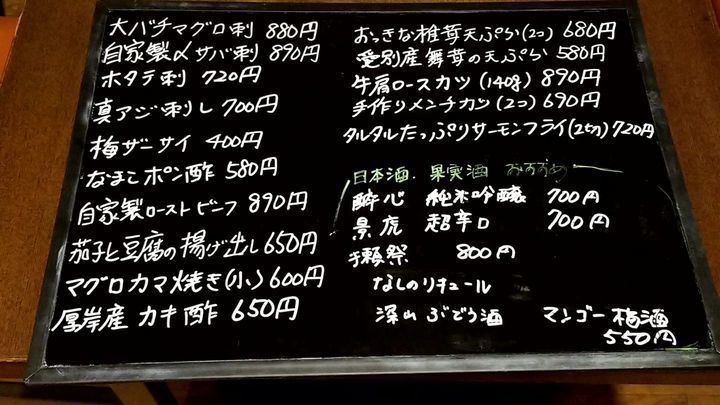 大バチマグロ刺 880円
自家製〆サバ刺 890円
ホタテ刺 720円
真アジ刺し 700円
梅ザーサイ 400円
なまこポン酢 580円
自家製ローストビーフ 890円
茄子と豆腐の揚げ出し 650円
マグロカマ焼き(小) 600円
厚岸産 カキ酢 650円
おっきな椎茸天ぷら(2コ) 680円
愛別産舞茸の天ぷら 580円
牛肩ロースカツ(140g) 890円
手作りメンチカツ(2コ) 690円
タルタルたっぷりサーモンフライ(2切) 720円
日本酒 果実酒 おすすめ
酔心 純米吟醸 700円
景虎 超辛口 700円
獺祭 800円
なしのリキュール
深山ぶどう酒 マンゴー梅酒
550円